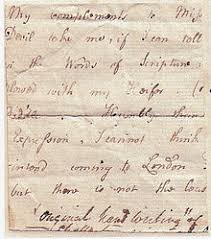 My complements to Miss
Devil take me, if I can tell
in the Words of Scripture
plowed with my Heifer
Humbly
Expression, I cannot think
intend coming to London
but there is not the least
"Original Hand Writing" of